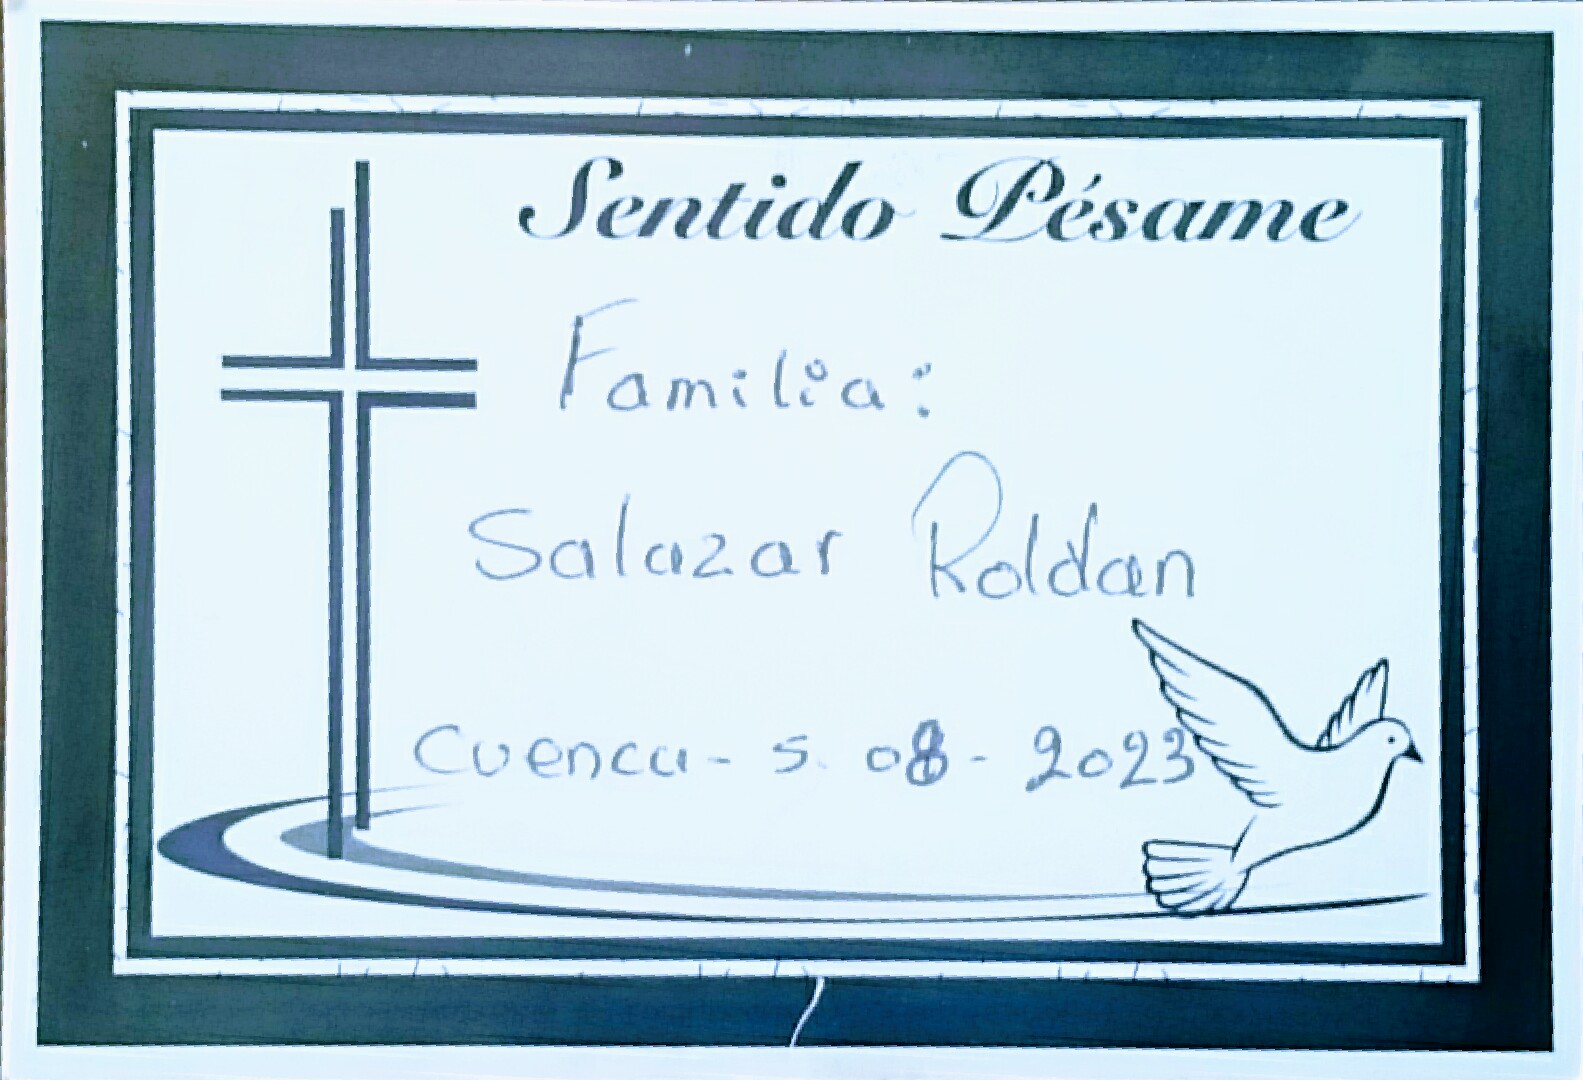 Sentido Pésame
Familia:
Salazar Roldan
Cuenca - 5. 08 - 2023